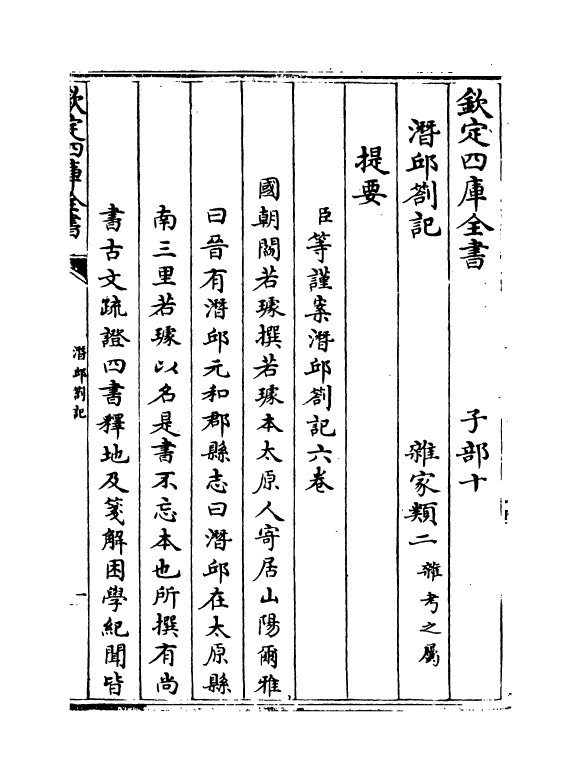 欽定四庫全書　子部十
潛邱劄記　雜家類二 雜考之屬
提要
臣等謹案潛邱劄記六卷
國朝閻若璩撰若璩本太原人寄居山陽爾雅
曰晉有潛邱元和郡縣志曰潛邱在太原縣
南三里若璩以名是書不忘本也所撰有尚
書古文疏證四書釋地及箋解困學紀聞皆
欽定四庫全書
潛邱劄記
一